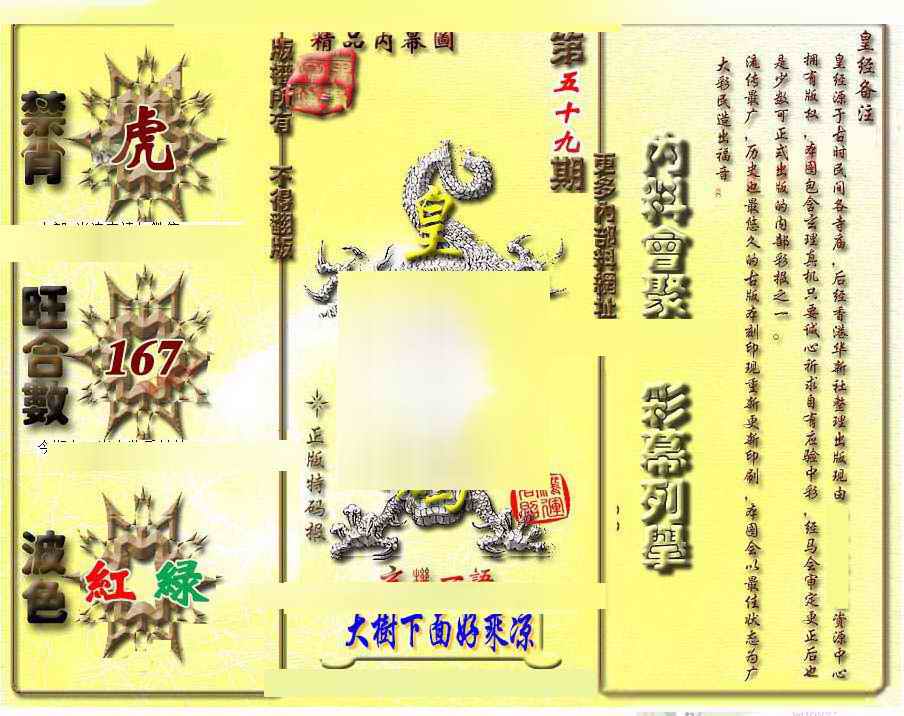 禁肖
虎
旺合數
167
波色
紅 綠
精品內幕圖
版權所有 不得翻版
第五十九期
更多內部料網址
皇
正版特码报
玄機一語
大樹下面好乘凉
內料會聚
彩幕列擧
皇经备注
皇经源于古时民间各寺庙,后经香港华新社整理出版现由
资源中心
拥有版权,本图包含玄理真机只要诚心祈求自有应验中彩,经马会审定更正后也
是少数可正式出版的内部彩报之一。
流传最广,历史也最悠久的古版本刻印现重新更新印刷,本图会以最佳状态为广
大彩民造出福音。